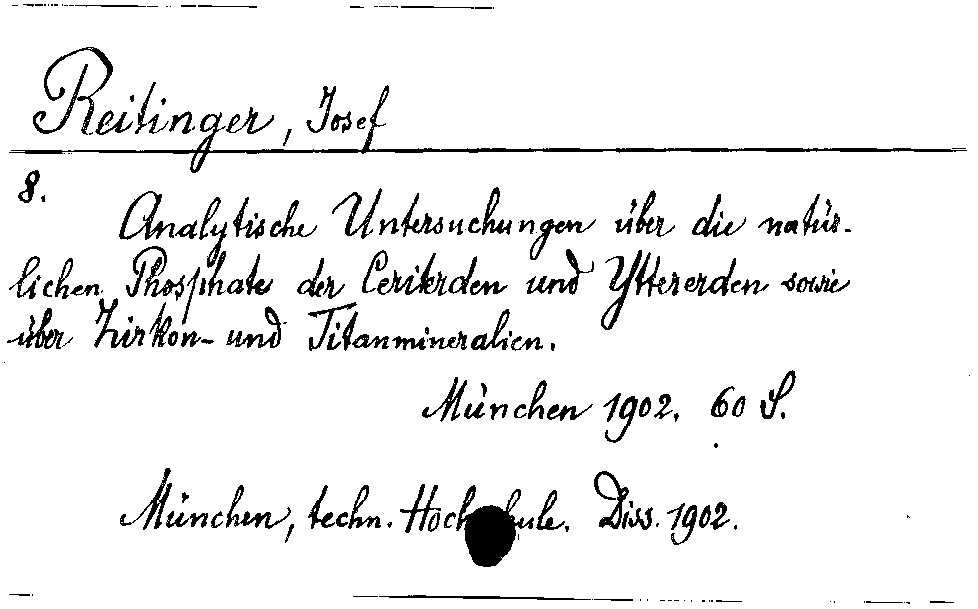 Reitinger, Josef
8.
Analytische Untersuchungen über die natür-
lichen Phosphate der Ceriterden und Yttererden sowie
über Zirkon- und Titanmineralien.
München 1902. 60 S.
München, techn. Hochschule. Diss. 1902.